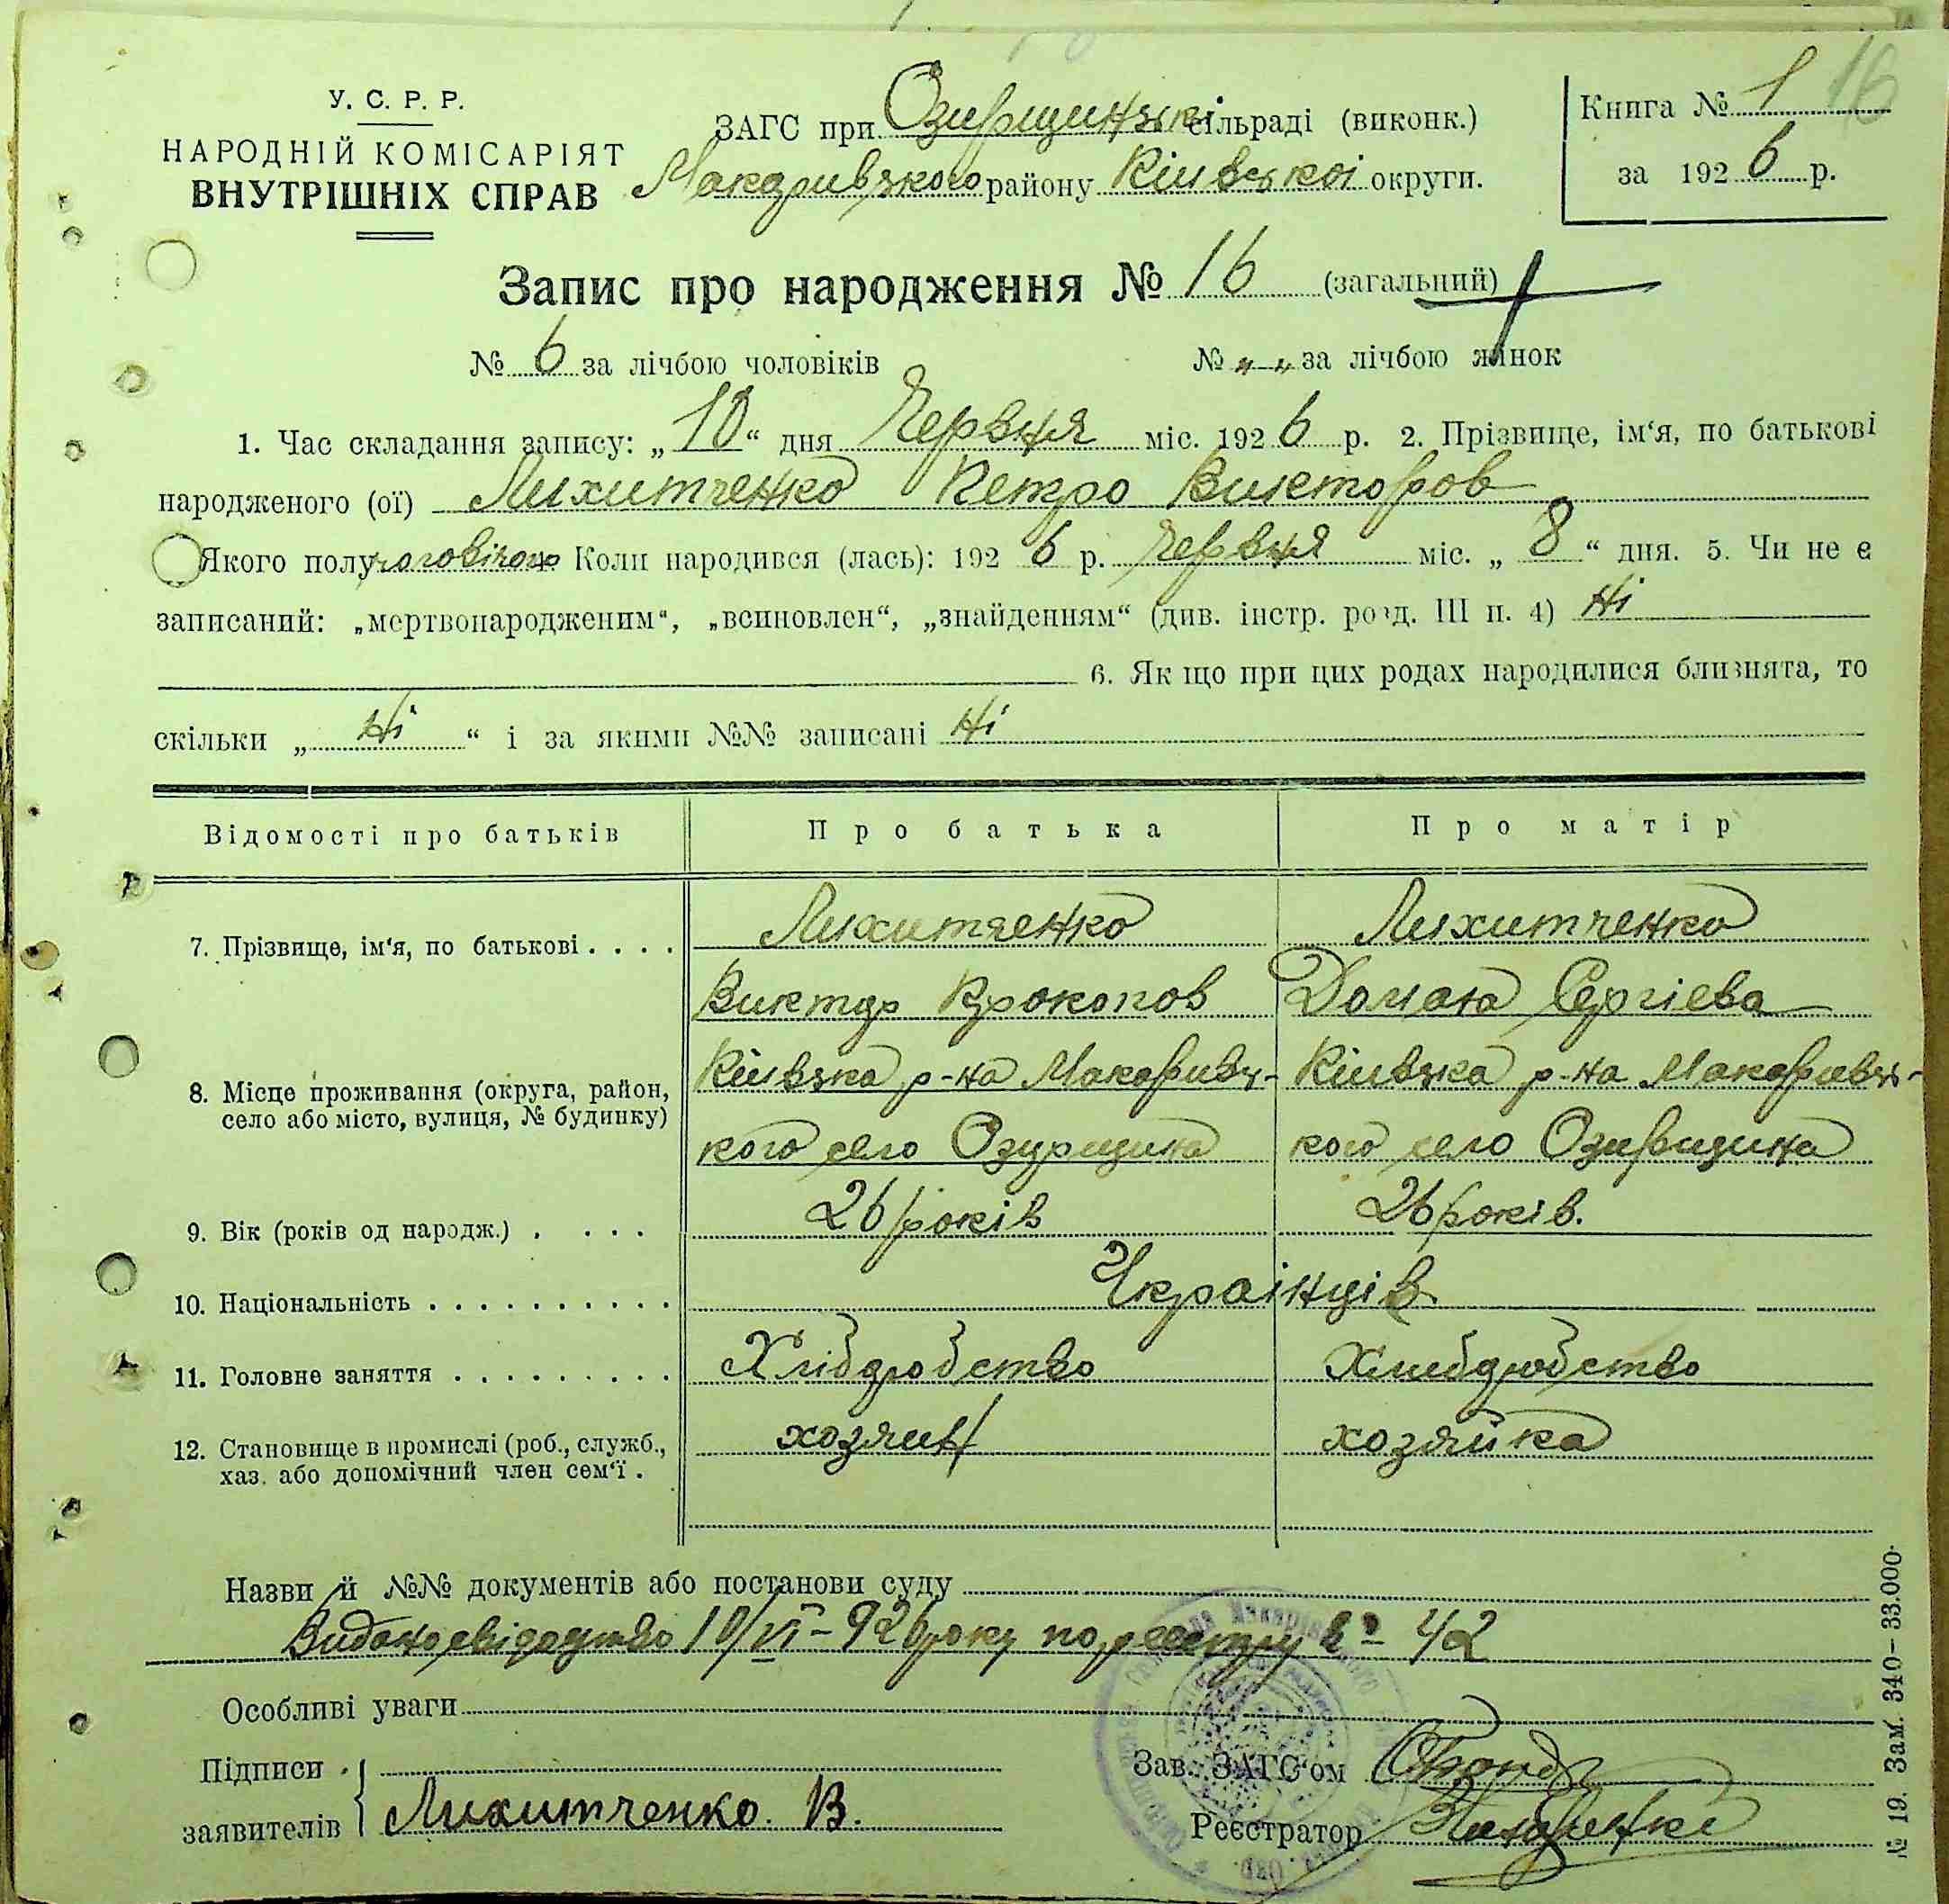 У. С. Р. Р.
НАРОДНІЙ КОМІСАРІЯТ
ВНУТРІШНІХ СПРАВ
ЗАГС при Озирщинські сільраді (виконк.)
Макаривзкого району Київської округи.
Книга № 1 16
за 1926 р.
Запис про народження № 16 (загальний)
№ 6 за лічбою чоловіків № „–„ за лічбою жінок
1. Час складання запису: „10“ дня Червня міс. 1926 р. 2. Прізвище, ім‘я, по батькові
народженого (ої) Лихитченко Петро Викторов
Якого полу чоловічого Коли народився (лась): 1926 р. Червня міс. „8“ дня. 5. Чи не є
записаний: „мертвонародженим“, „всиновлен“, „знайденням“ (див. інстр. розд. III п. 4) Ні
6. Як що при цих родах народилися близнята, то
скільки „Ні“ і за якими №№ записані Ні
Відомості про батьків Про батька Про матір
7. Прізвище, ім‘я, по батькові . . . . Лихитченко Лихитченко
Виктор Прокопов Домана Сергієва
8. Місце проживання (округа, район, село або місто, вулиця, № будинку) Київзка р-на Макаривз- Київзка р-на Макаривзь-
кого село Озирщина кого село Озирщина
9. Вік (років од народж.) . . . . 26 років 26 років.
10. Національність . . . . . . . . . . Українців
11. Головне заняття . . . . . . . . . Хлібдробство Хлибдробство
12. Становище в промислі (роб., служб., хаз. або допомічний член сем‘ї . хозяин хозяйка
Назви й №№ документів або постанови суду
Видано свідоцтво 10/VI – 926 року по реєстру № 42
Особливі уваги
Підписи заявителів Лихитченко. В.
Зав. ЗАГС‘ом
Реєстратор
№ 19. Зам. 340—33.000.